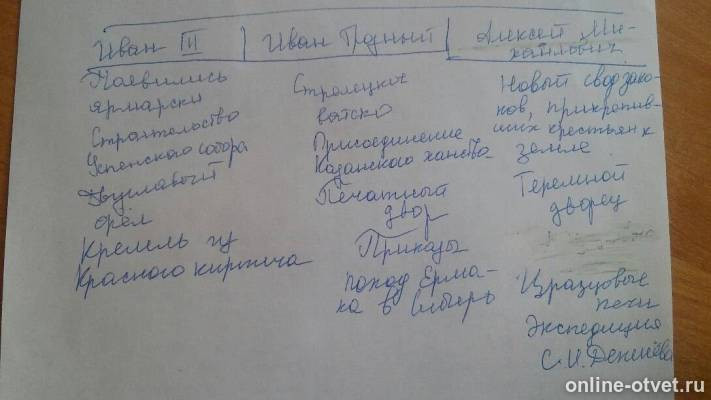 Иван III | Иван Грозный | Алексей Ми-
хайлович
Появились
ярмарки
Строительство
Успенского собора
Двуглавый
орёл
Кремль из
Красного кирпича
Стрелецкое
войско
Присоединение
Казанского ханства
Печатный
двор
Приказы
поход Ерма-
ка в Сибирь
Новый свод зако-
нов, прикрепив-
ших крестьян к
земле
Теремной
дворец
Изразцовые
печи
Экспедиция
С.И.Дежнёва
online-otvet.ru